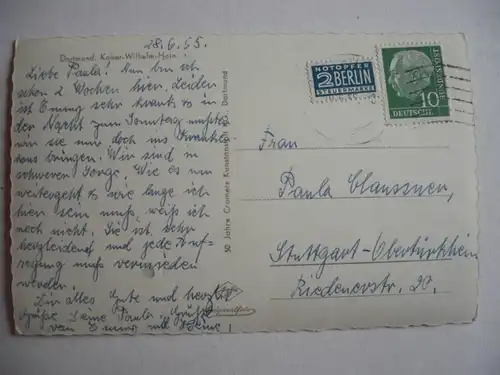 28.6.55.
Dortmund, Kaiser-Wilhelm-Hain
Liebe Paula! Nun bin ich
schon 2 Wochen hier. Leider
ist Emmy sehr krank, so in
der Nacht zum Sonntag mußten
wir sie doch ins Kranken-
haus bringen. Wir sind in
schwerer Sorge. Wie es nun
weitergeht u. wie lange ich
hier sein muß, weiß ich
noch nicht. Sie ist sehr
herzleidend und jede Auf-
regung muß vermieden
werden.
Dir alles Gute und herzl.
Grüße Deine Paula. Grüße
von Emmy und Heine!
50 Jahre Cramers Kunstanstalt KG. Dortmund
NOTOPFER
2 BERLIN
STEUERMARKE
DEUTSCHE
BUNDESPOST
10
Frau
Paula Claussner,
Stuttgart-Obertürkheim
Riedenerstr. 20.